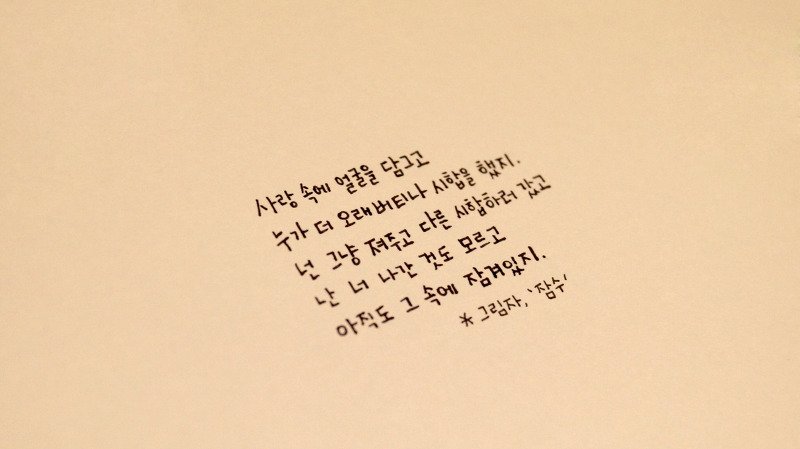 사랑 속에 얼굴을 담그고
누가 더 오래 버티나 시합을 했지.
넌 그냥 져주고 다른 시합하러 갔고
난 너 나간 것도 모르고
아직도 그 속에 잠겨있지.
* 그림자, '잠수'